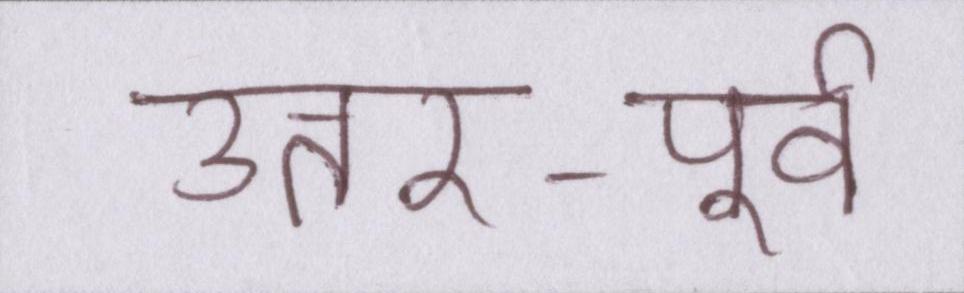 उत्तर-पूर्व